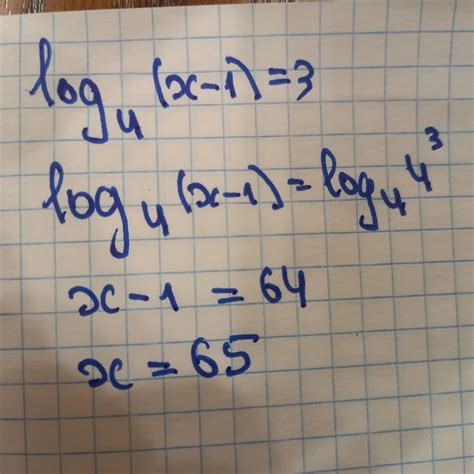 log₄(x-1)=3
log₄(x-1)=log₄4³
x-1=64
x=65